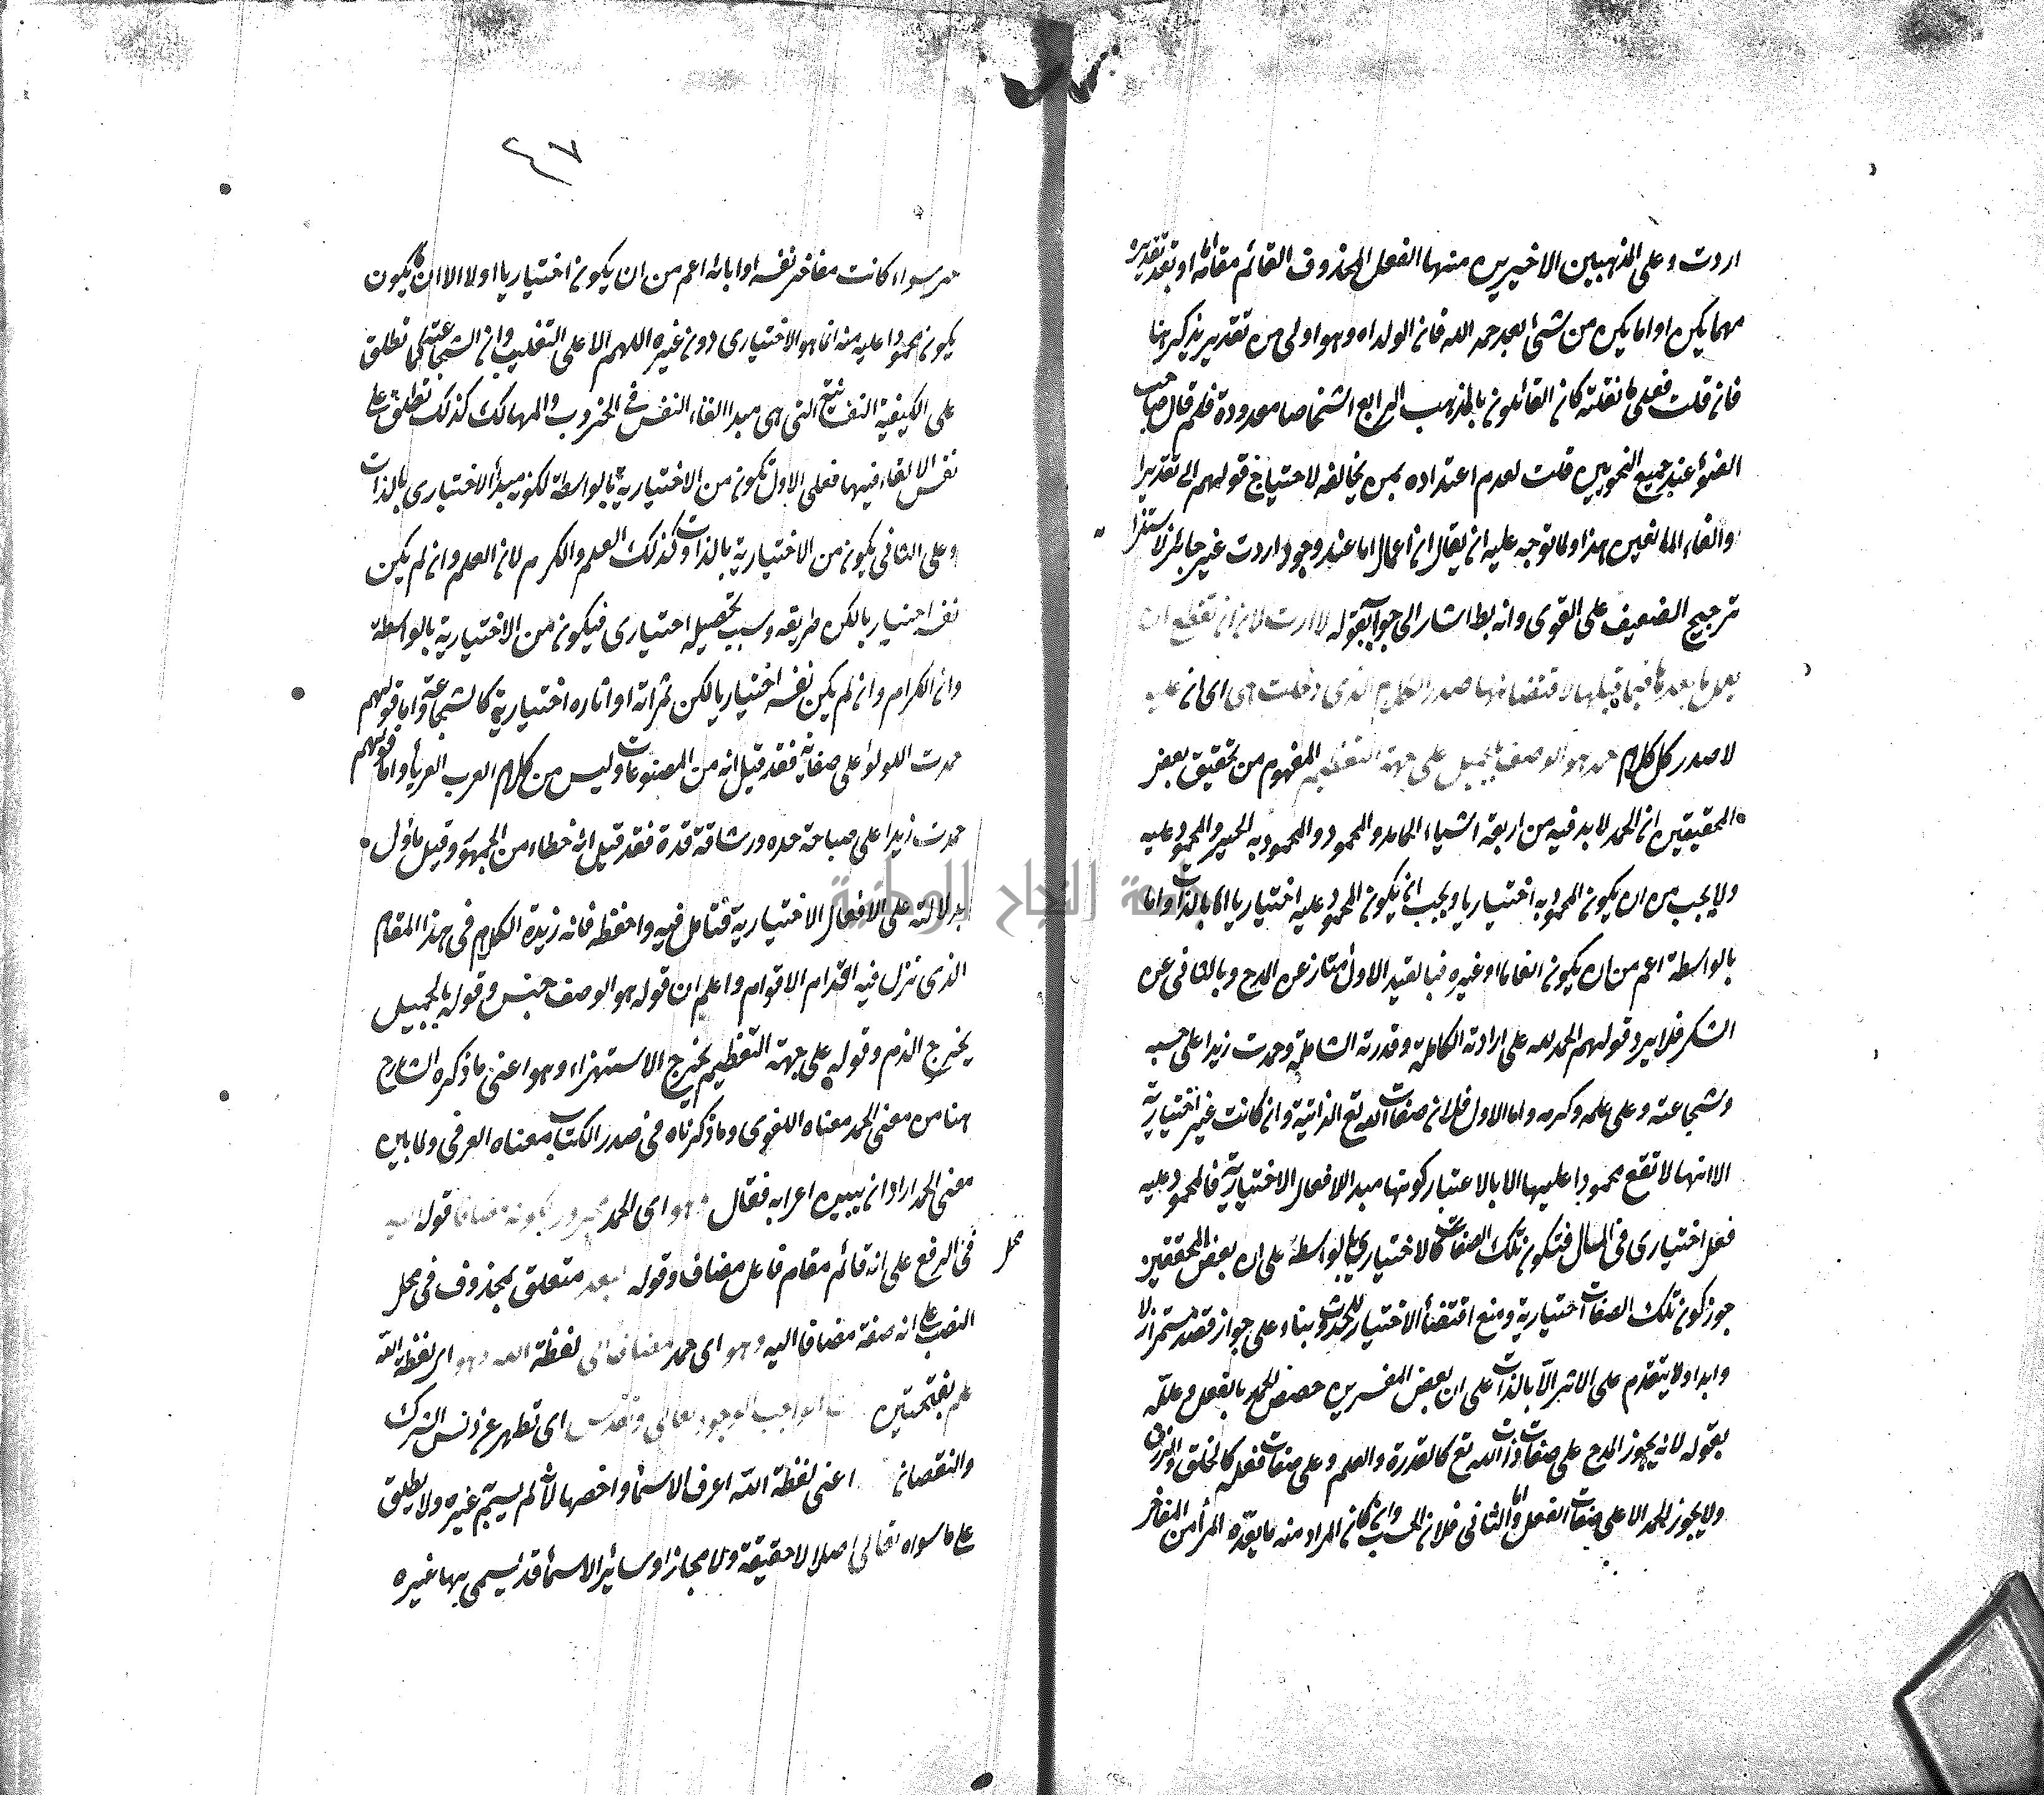 اردت وعلى المذهبين الاخيرين منها الفعل المحذوف القائم مقامه او بعد تقديره
مهما يكن او اما يكن من شئ بعد حمد الله فان الولد اه وهو اولى من تقدير يذكر هنا
فان قلت فعلى ما نقلته كان القائلون بالمذهب الرابع اشخاصا معدودة فلم قال صاحب
الضوأ عند جميع النحويين قلت لعدم اعتداده بمن يخالفه لاحتياج قولهم الى تقدير
والغاء المانعين هذا ولما توجه عليه ان يقال ان اعمال اما عند وجود اردت غير جائز لاستلزا
ترجيح الضعيف على القوى وانه بط اشار الى جوابه بقوله لا اردت لان ان تقطع ان
يعمل ما بعدها فيما قبلها لاقتضائها صدر الكلام الذى دخلت هى اى ان عليه
لا صدر كل كلام حمد هو الوصف بالجميل على جهة التعظيم المفهوم من تحقيق بعض
المحققين ان الحمد لا بد فيه من اربعة اشياء الحامد والمحمود والمحمود به والمحمود عليه
ولا يجب من ان يكون المحمود به اختياريا ويجب ان يكون المحمود عليه اختياريا اما بالذات واما
بالواسطة اعم من ان يكون انعاما او غيره فبالقيد الاول امتاز عن المدح وبالثانى عن
الشكر فلا يرد قولهم الحمد لله على ارادته الكاملة وقدرته الشاملة وحمدت زيدا على حسبه
وشجاعته وعلى علمه وكرمه واما الاول فلان صفات الله تع الذاتية وان كانت غير اختيارية
الا انها لا تقع محمودا عليها الا بالاعتبار كونها مبدا لافعال الاختيارية فالمحمود عليه
فعل اختيارى فى المال فتكون تلك الصفات كالاختيارى بالواسطة على ان بعض المحققين
جوز كون تلك الصفات اختيارية ومنع اقتضأ الاختيار للحدوث بناء على جواز قصد مستمر ازلا
وابدا ولا يتقدم على الاثر الا بالذات على ان بعض المفسرين خصص الحمد بالفعل وعلله
بقوله لانه يجوز المدح على صفات ذات الله تع كالقدرة والعلم وعلى صفات فعله كالخلق والرزق
ولا يجوز الحمد الا على صفات الفعل واما الثانى فلان الحسب وان كان المراد منه ما يعده المرأ من المفاخر
٤٧
سواء كانت مفاخر نفسه او ابائه اعم من ان يكون اختياريا او لا الا ان يكون
يكون محمودا عليه منه انما هو الاختيارى دون غيره اللهم الا على التغليب وان الشجاعة كما تطلق
على الكيفية النفسانية التى هى مبدا القاء النفس فى الحروب والمهالك كذلك تطلق على
نفس الالقاء فيها فعلى الاول تكون من الاختيارية بالواسطة لكونه مبدأ الاختيارى بالذات
وعلى الثانى يكون من الاختيارية بالذات وكذلك العلم والكرم لان العلم وان لم يكن
نفسه اختياريا لكن طريقه وسبب تحصيله اختيارى فيكون من الاختيارية بالواسطة
وان الكرام وان لم يكن نفسه اختياريا لكن ثمراته او اثاره اختيارية كالشجاعة واما قولهم
حمدت اللولؤ على صفائه فقد قيل انه من المصنوعات وليس من كلام العرب العرباء واما قولهم
حمدت زيدا على صباحة خده ورشاقة قده فقد قيل انه خطاء من الجمهور وقيل مأول
بدلالته على الافعال الاختيارية فتامل فيه واحفظه فانه زبدة الكلام فى هذا المقام
الذى تزل فيه اقدام الاقوام واعلم ان قوله هو الوصف جنس وقوله بالجميل
يخرج الذم وقوله على جهة التعظيم يخرج الاستهزاء وهو اعنى ما ذكره الشارح
هنا من معنى الحمد معناه اللغوى وما ذكرناه فى صدر الكتاب معناه العرفى ولما بين
معنى الحمد اراد ان يبين اعرابه فقال وهو اى الحمد مجرور بكونه مضافا قوله اليه
محل
فى الرفع على انه قائم مقام فاعل مضاف وقوله لبعد متعلق بمحذوف فى محل
النصب على انه صفة مضافا اليه وهو اى حمد مضاف الى لفظة الله وهو اى لفظة الله
علم بفتحتين الواجب الوجود تعالى وتقدس اى تطهر عن دنس الشرك
والنقصان اعنى لفظة الله اعرف الاسمأ واخصها لانه لم يسم غيره ولا يطلق
على ما سواه تعالى اصلا لا حقيقة ولا مجازا وسائر الاسمأ قد يسمى بها غيره
جامعة النجاح الوطنية